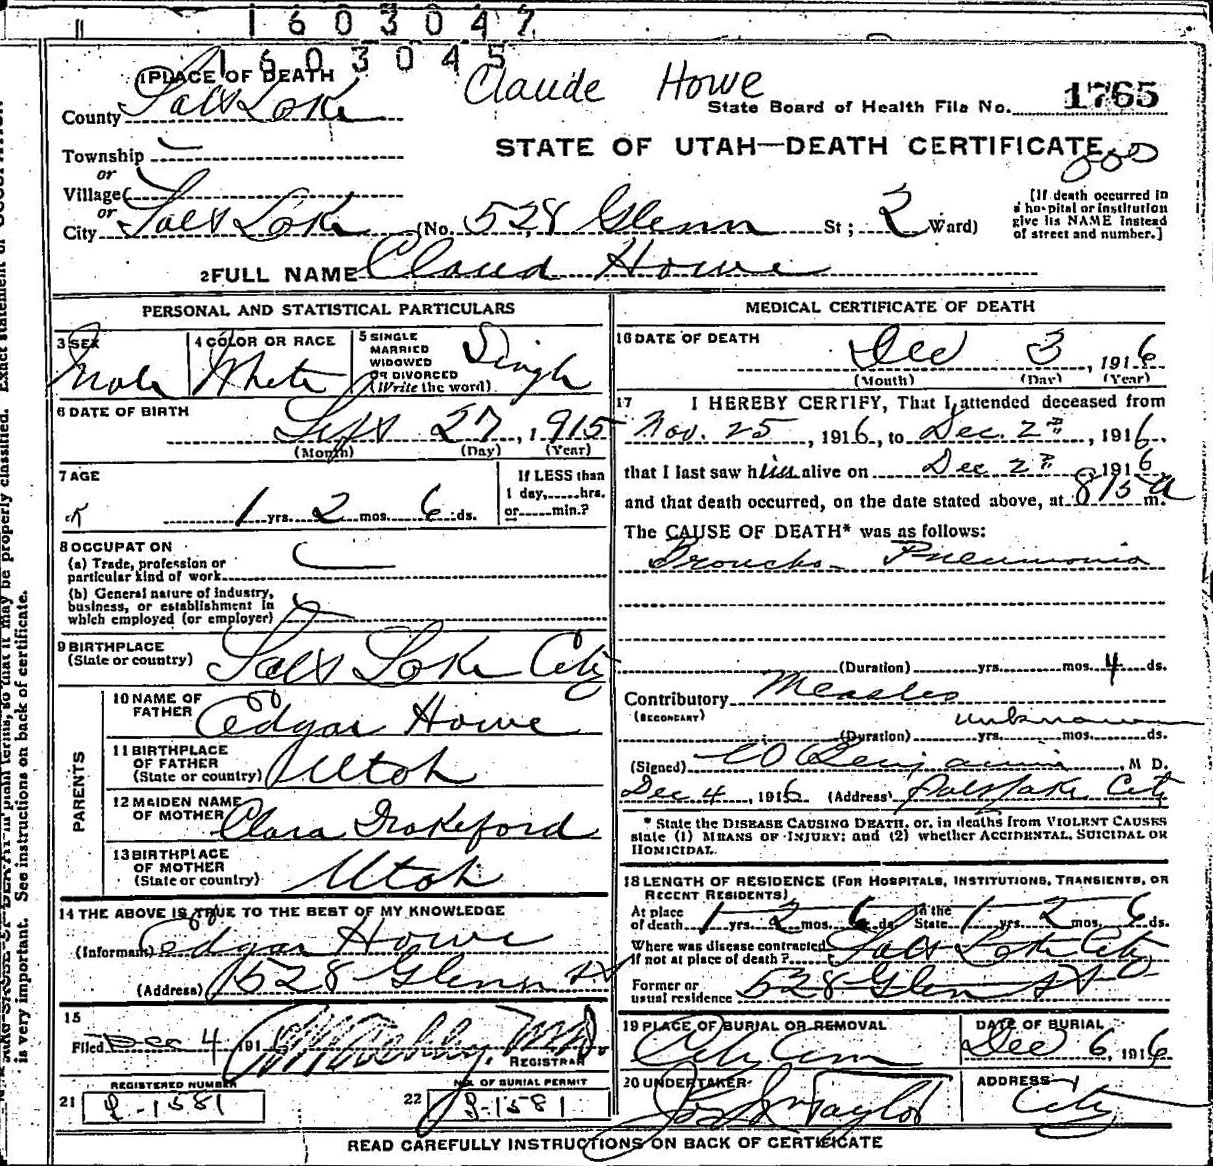 1603047
1603045
Claude Howe
1 PLACE OF DEATH
County Salt Lake
State Board of Health File No. 1765
Township
or
STATE OF UTAH—DEATH CERTIFICATE
Village
or
City Salt Lake (No. 528 Glenn St; 2 Ward)
[If death occurred in
a hospital or institution
give its NAME instead
of street and number.]
2 FULL NAME Claud Howe
PERSONAL AND STATISTICAL PARTICULARS
3 SEX Male
4 COLOR OR RACE White
5 SINGLE
MARRIED
WIDOWED
OR DIVORCED
(Write the word) Single
6 DATE OF BIRTH
Sept 27, 1915
(Month) (Day) (Year)
7 AGE
1 yrs. 2 mos. 6 ds.
If LESS than
1 day, hrs.
or min.?
8 OCCUPATION
(a) Trade, profession or
particular kind of work
(b) General nature of industry,
business, or establishment in
which employed (or employer)
9 BIRTHPLACE
(State or country) Salt Lake City
PARENTS
10 NAME OF
FATHER Edgar Howe
11 BIRTHPLACE
OF FATHER
(State or country) Utah
12 MAIDEN NAME
OF MOTHER Clara
13 BIRTHPLACE
OF MOTHER
(State or country) Utah
14 THE ABOVE IS TRUE TO THE BEST OF MY KNOWLEDGE
(Informant) Edgar Howe
(Address) 528 Glenn St
15
Filed Dec 4 191
M.D.
REGISTRAR
REGISTERED NUMBER
21 1581
NO. OF BURIAL PERMIT
22 1581
MEDICAL CERTIFICATE OF DEATH
16 DATE OF DEATH
Dec 3, 1916
(Month) (Day) (Year)
17 I HEREBY CERTIFY, That I attended deceased from
Nov. 25, 1916, to Dec. 2nd, 1916.
that I last saw him alive on Dec 2nd, 1916
and that death occurred, on the date stated above, at 815 a m.
The CAUSE OF DEATH* was as follows:
Broncho-Pneumonia
(Duration) yrs. mos. 4 ds.
Contributory Measles
(SECONDARY)
unknown
(Duration) yrs. mos. ds.
(Signed) Benjamin, M D.
Dec 4, 1916 (Address) Salt Lake City
* State the DISEASE CAUSING DEATH, or, in deaths from VIOLENT CAUSES
state (1) MEANS OF INJURY; and (2) whether ACCIDENTAL, SUICIDAL OR
HOMICIDAL.
18 LENGTH OF RESIDENCE (FOR HOSPITALS, INSTITUTIONS, TRANSIENTS, OR
RECENT RESIDENTS)
At place
of death 1 yrs. 2 mos. 6 ds. In the
State 1 yrs. 2 mos. 6 ds.
Where was disease contracted
If not at place of death? Salt Lake City
Former or
usual residence 528 Glenn St
19 PLACE OF BURIAL OR REMOVAL
City Cem
DATE OF BURIAL
Dec 6, 1916
20 UNDERTAKER
Taylor
ADDRESS
City
READ CAREFULLY INSTRUCTIONS ON BACK OF CERTIFICATE
is very important. See instructions on back of certificate.